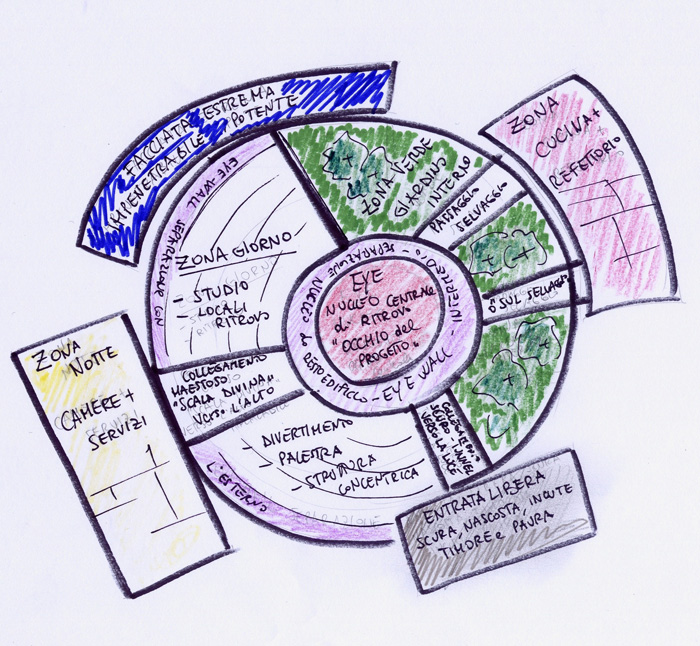 FACCIATA ESTREMA
IMPENETRABILE POTENTE
EYE-WALL SEPARAZIONE CON
L'ESTERNO
ZONA GIORNO
- STUDIO
- LOCALI
RITROVO
ZONA VERDE
GIARDINO
INTERNO
PASSAGGIO
SELVAGGIO
" SUL SELVAGGIO
ZONA
CUCINA+
REFETTORIO
EYE
NUCLEO CENTRALE
di RITROVO
"OCCHIO del
PROGETTO"
INTERMEDIO - SEPARAZIONE NUCLEO
RESTO EDIFICIO - EYE WALL
ZONA
NOTTE
CAMERE+
SERVIZI
COLLEGAMENTO
MAESTOSO
"SCALA DIVINA"
VERSO L'ALTO
- DIVERTIMENTO
- PALESTRA
- STRUTTURA
CONCENTRICA
COLLEGAMENTO
SCURO TUNNEL
VERSO LA LUCE
ENTRATA LIBERA
SCURA, NASCOSTA, INCUTE
TIMORE e PAURA